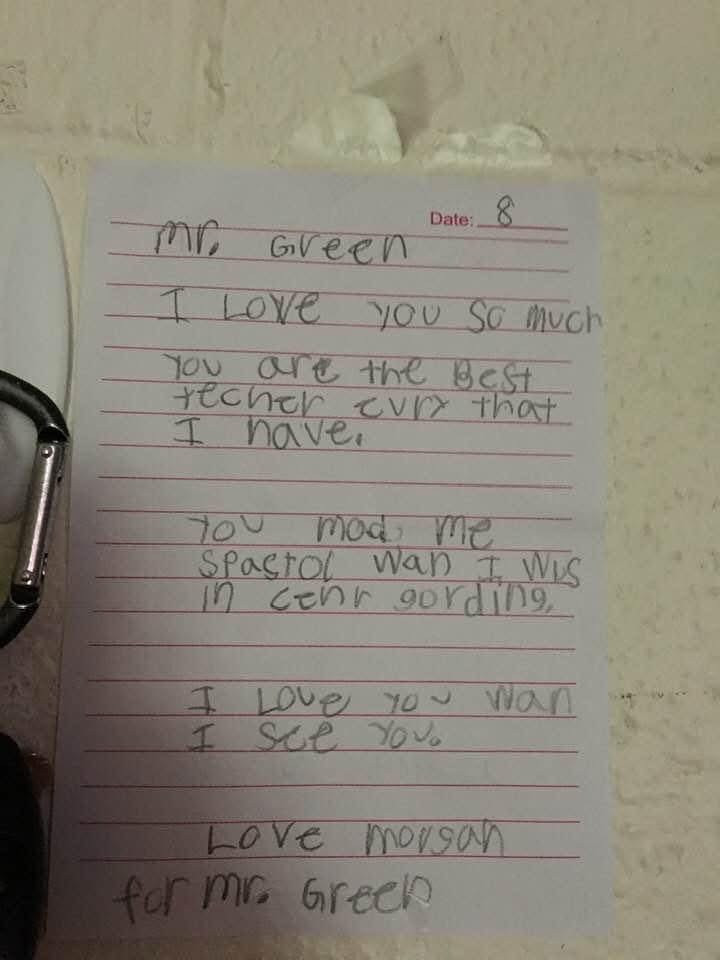 Date: 8
Mr. Green
I Love you so much
you are the Best
techer evry that
I have.
you mad me
spastol wan I wis
in cenr gording.
I Love you wan
I see you.
Love morgan
for mr. Green